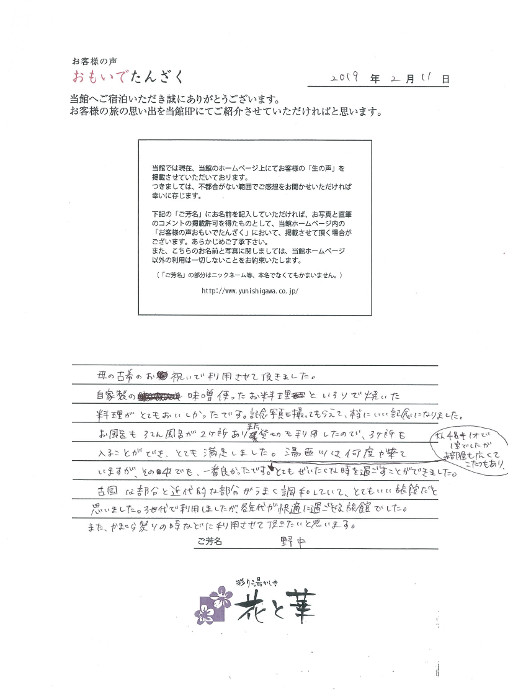 お客様の声
おもいでたんざく
2019 年 2 月 11 日
当館へご宿泊いただき誠にありがとうございます。
お客様の旅の思い出を当館HPにてご紹介させていただければと思います。
当館では現在、当館のホームページ上にてお客様の「生の声」を
掲載させていただいております。
つきましては、不都合がない範囲でご感想をお聞かせいただければ
幸いに存じます。
下記の「ご芳名」にお名前を記入していただければ、お写真と直筆
のコメントの掲載許可を得たものとして、当館ホームページ内の
「お客様の声おもいでたんざく」において、掲載させて頂く場合が
ございます。あらかじめご了承下さい。
また、こちらのお名前と写真に関しましては、当館ホームページ
以外の利用は一切しないことをお約束いたします。
(「ご芳名」の部分はニックネーム等、本名でなくてもかまいません。)
http://www.yunishigawa.co.jp/
母の古希のお祝いで利用させて頂きました。
自家製の味噌使ったお料理といろりで焼いた
料理がとてもおいしかったです。記念写真も撮ってもらえて、特にいい記念になりました。
お風呂も 風呂が2ヶ所あり 貸切も利用したので、3ヶ所も
入ることができ、とても満足しました。湯西川には何度か来て
いますが、その中でも、一番良かったです。とてもぜいたくな時を過ごすことができました。
古風な部分と近代的な部分がうまく調和していて、とてもいい旅館だと
思いました。3世代で利用しましたが、各年代が快適に過ごせる旅館でした。
また、かまくら祭りの時などに利用させて頂きたいと思います。
ご芳名 野中
彩り湯かしき
花と華